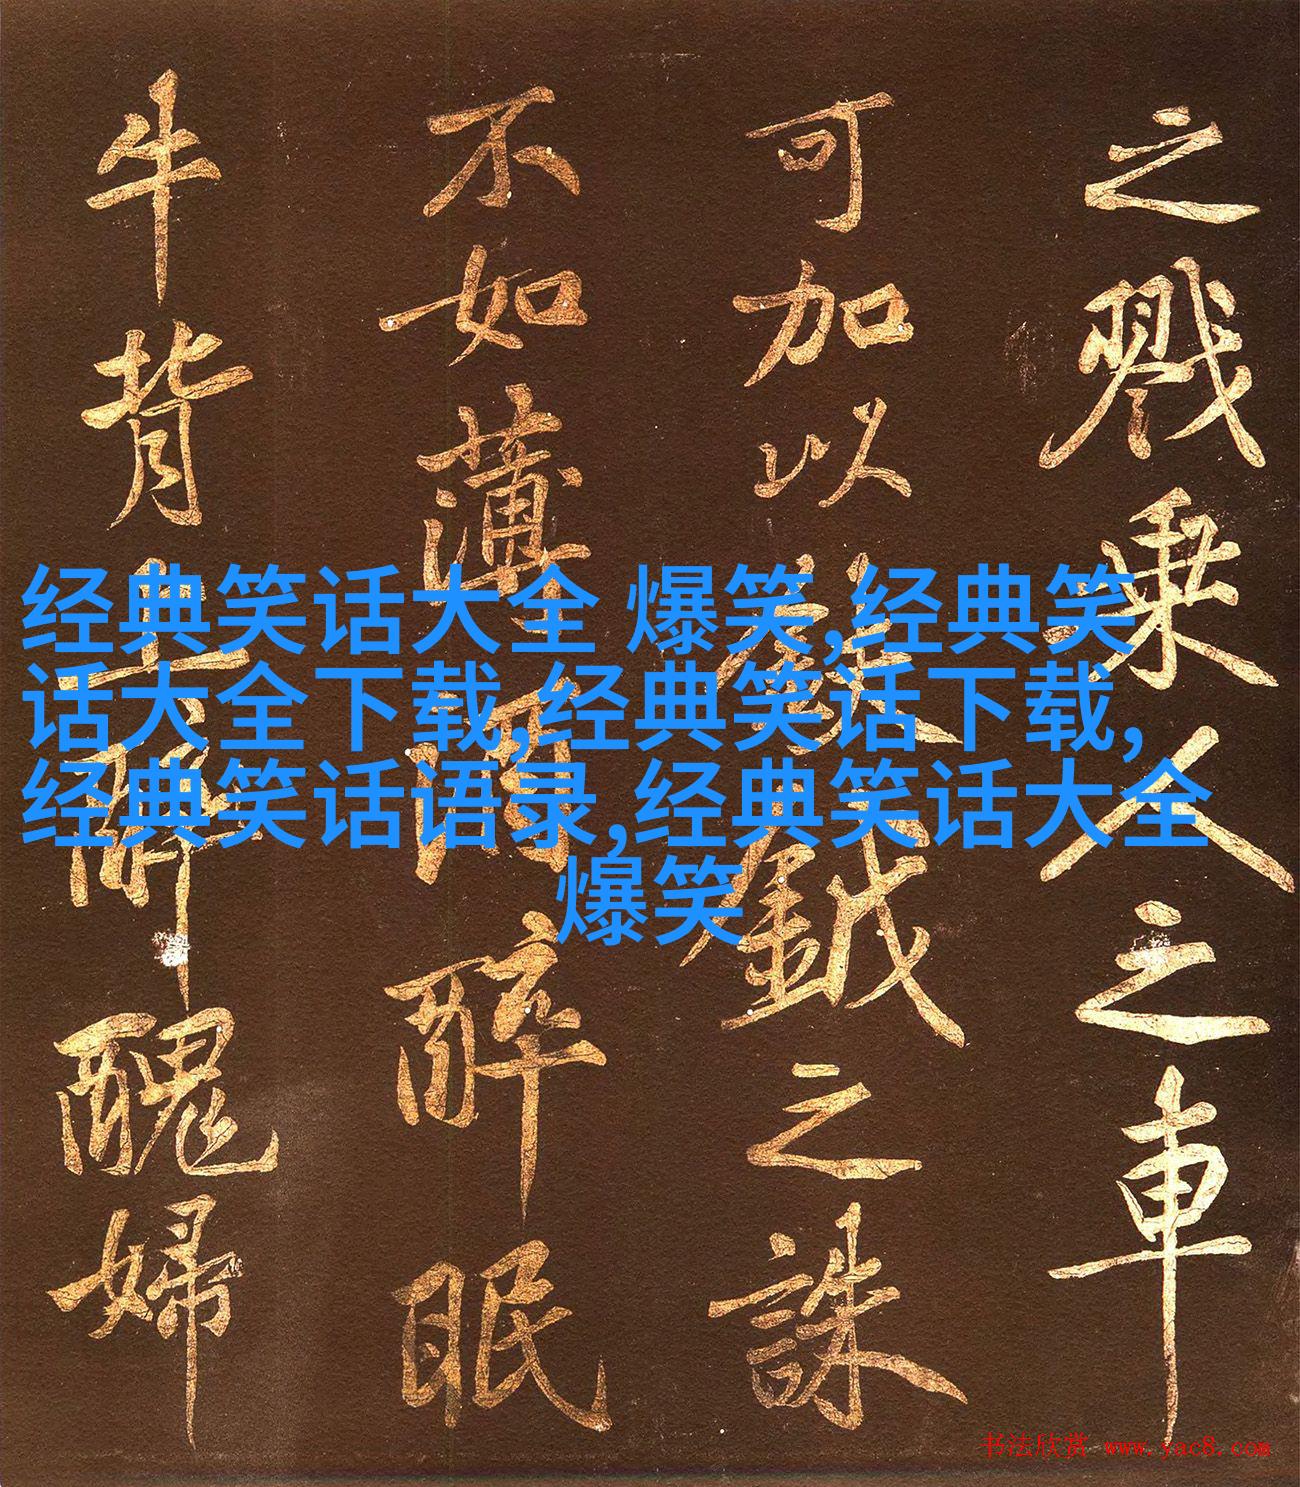 之戮乘人之車
可加以鉞之誅
不如薄酒醉眠
牛背上醉醜婦
经典笑话大全 爆笑,经典笑
话大全下载,经典笑话下载,
经典笑话语录,经典笑话大全
爆笑
书法欣赏 www.yac8.com